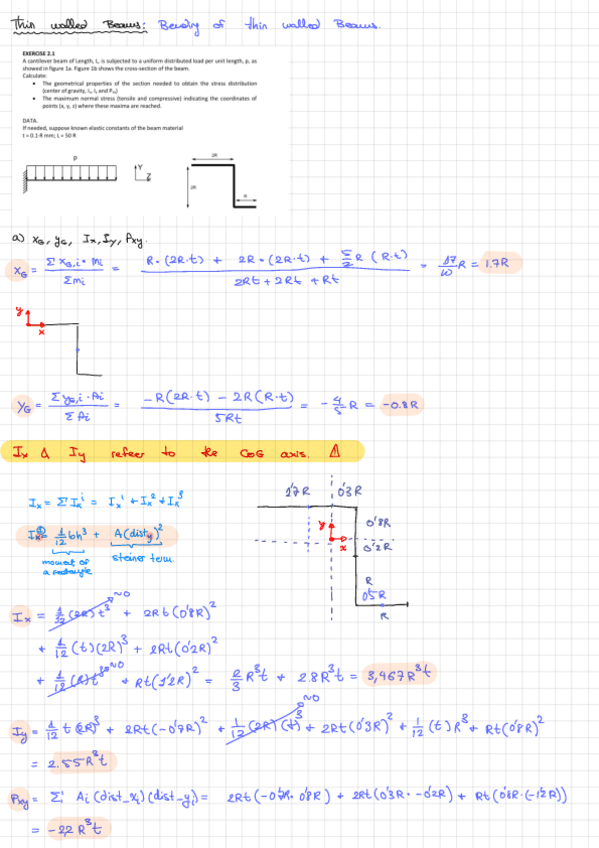 Thin walled Beams: Bending of thin walled Beams.
EXERCISE 2.1
A cantilever beam of Length, L, is subjected to a uniform distributed load per unit length, p, as
showed in figure 1a. Figure 1b shows the cross-section of the beam.
Calculate:
• The geometrical properties of the section needed to obtain the stress distribution
(center of gravity, Ix, Iy and Pxy)
• The maximum normal stress (tensile and compressive) indicating the coordinates of
points (x, y, z) where these maxima are reached.
DATA.
If needed, suppose known elastic constants of the beam material
t = 0.1·R mm; L = 50·R
p
Y
Z
2R
2R
R
a) xG, yG, Ix, Iy, Pxy.
XG = Σ XG,i · mi / Σ mi = R·(2R·t) + 2R·(2R·t) + 5/2 R (R·t) / 2Rt + 2Rt + Rt = 17/10 R = 1.7R
y
x
YG = Σ yG,i · Ai / Σ Ai = -R(2R·t) - 2R(R·t) / 5Rt = -4/5 R = -0.8R
Ix & Iy refeer to the CoG axis. ⚠
1'7R 0'3R
Ix = Σ Ix^i = Ix^1 + Ix^2 + Ix^3
0'8R
y
Ix^① = 1/12 bh³ + A(disty)²
x
0'2R
moment of a rectangle
steiner term.
R
0'5R
R
Ix = 1/12 (2R) t³ ~0 + 2Rt (0'8R)²
+ 1/12 (t)(2R)³ + 2Rt(0'2R)²
+ 1/12 (R) t³ ~0 + Rt(1'2R)² = 2/3 R³t + 2.8R³t = 3,467R³t
Iy = 1/12 t(2R)³ + 2Rt(-0'7R)² + 1/12 (2R)(t)³ ~0 + 2Rt(0'3R)² + 1/12 (t)R³ + Rt(0'8R)²
= 2.55R³t
Pxy = Σ Ai (dist_xi)(dist_yi) = 2Rt(-0'7R· 0'8R) + 2Rt(0'3R · -0'2R) + Rt(0'8R·(-1'2R))
= -2,2 R³t